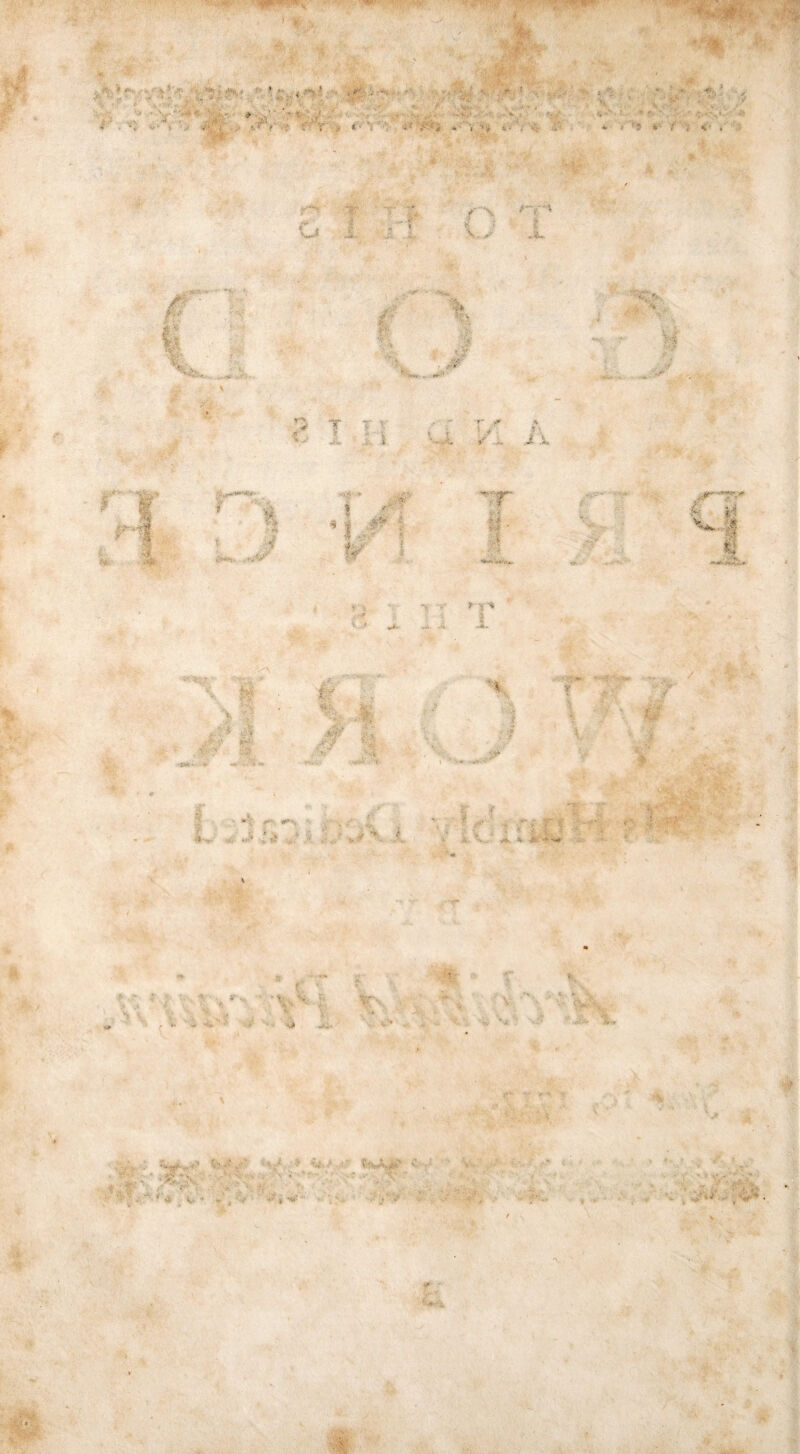 TO HIS
GOD
AND HIS
PRINCE
THIS
WORK
Is Humbly Dedicated
BY
Archibald Pitcairn.
June 10.
a